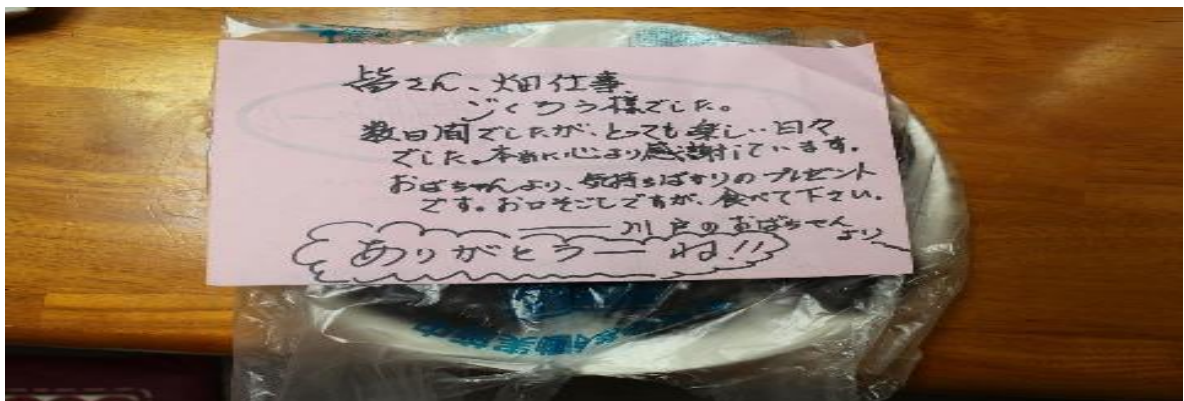 皆さん、畑仕事
ごくろう様でした。
数日間でしたが、とっても楽しい日々
でした。本当に心より感謝しています。
おばちゃんより、気持ちばかりのプレゼント
です。お口そごしですが、食べて下さい。
川戸のおばちゃんより
ありがとうーね!!